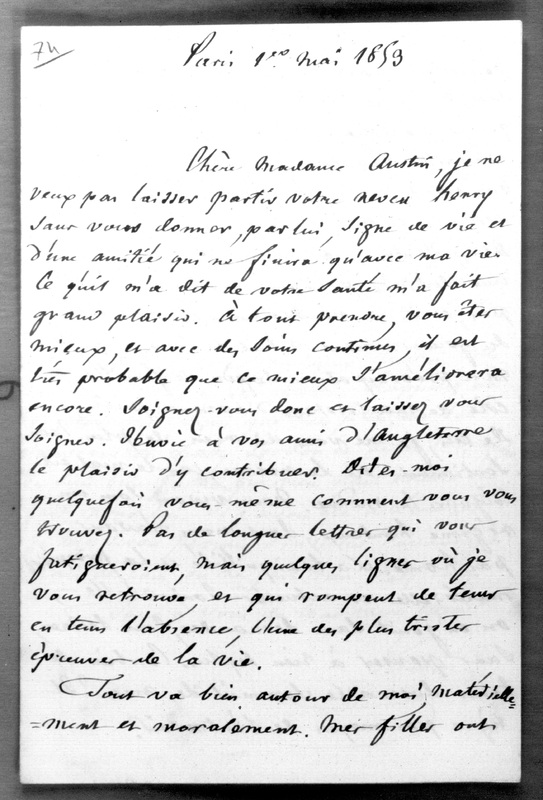 74
Paris 1er mai 1853
Chère Madame Austin, je ne
veux pas laisser partir votre neveu Henry
sans vous donner, par lui, signe de vie et
d'une amitié qui ne finira qu'avec ma vie.
Ce qu'il m'a dit de votre santé m'a fait
grand plaisir. À tout prendre, vous êtes
mieux, et avec des soins continus, il est
très probable que ce mieux s'améliorera
encore. Soignez-vous donc et laissez vous
soigner. J'envie à vos amis d'Angleterre
le plaisir d'y contribuer. Dites-moi
quelquefois vous-même comment vous vous
trouvez. Pas de longues lettres qui vous
fatigueroient, mais quelques lignes où je
vous retrouve et qui rompent de tems
en tems l'absence, l'une des plus tristes
épreuves de la vie.
Tout va bien autour de moi, matérielle=
=ment et moralement. Mes filles ont